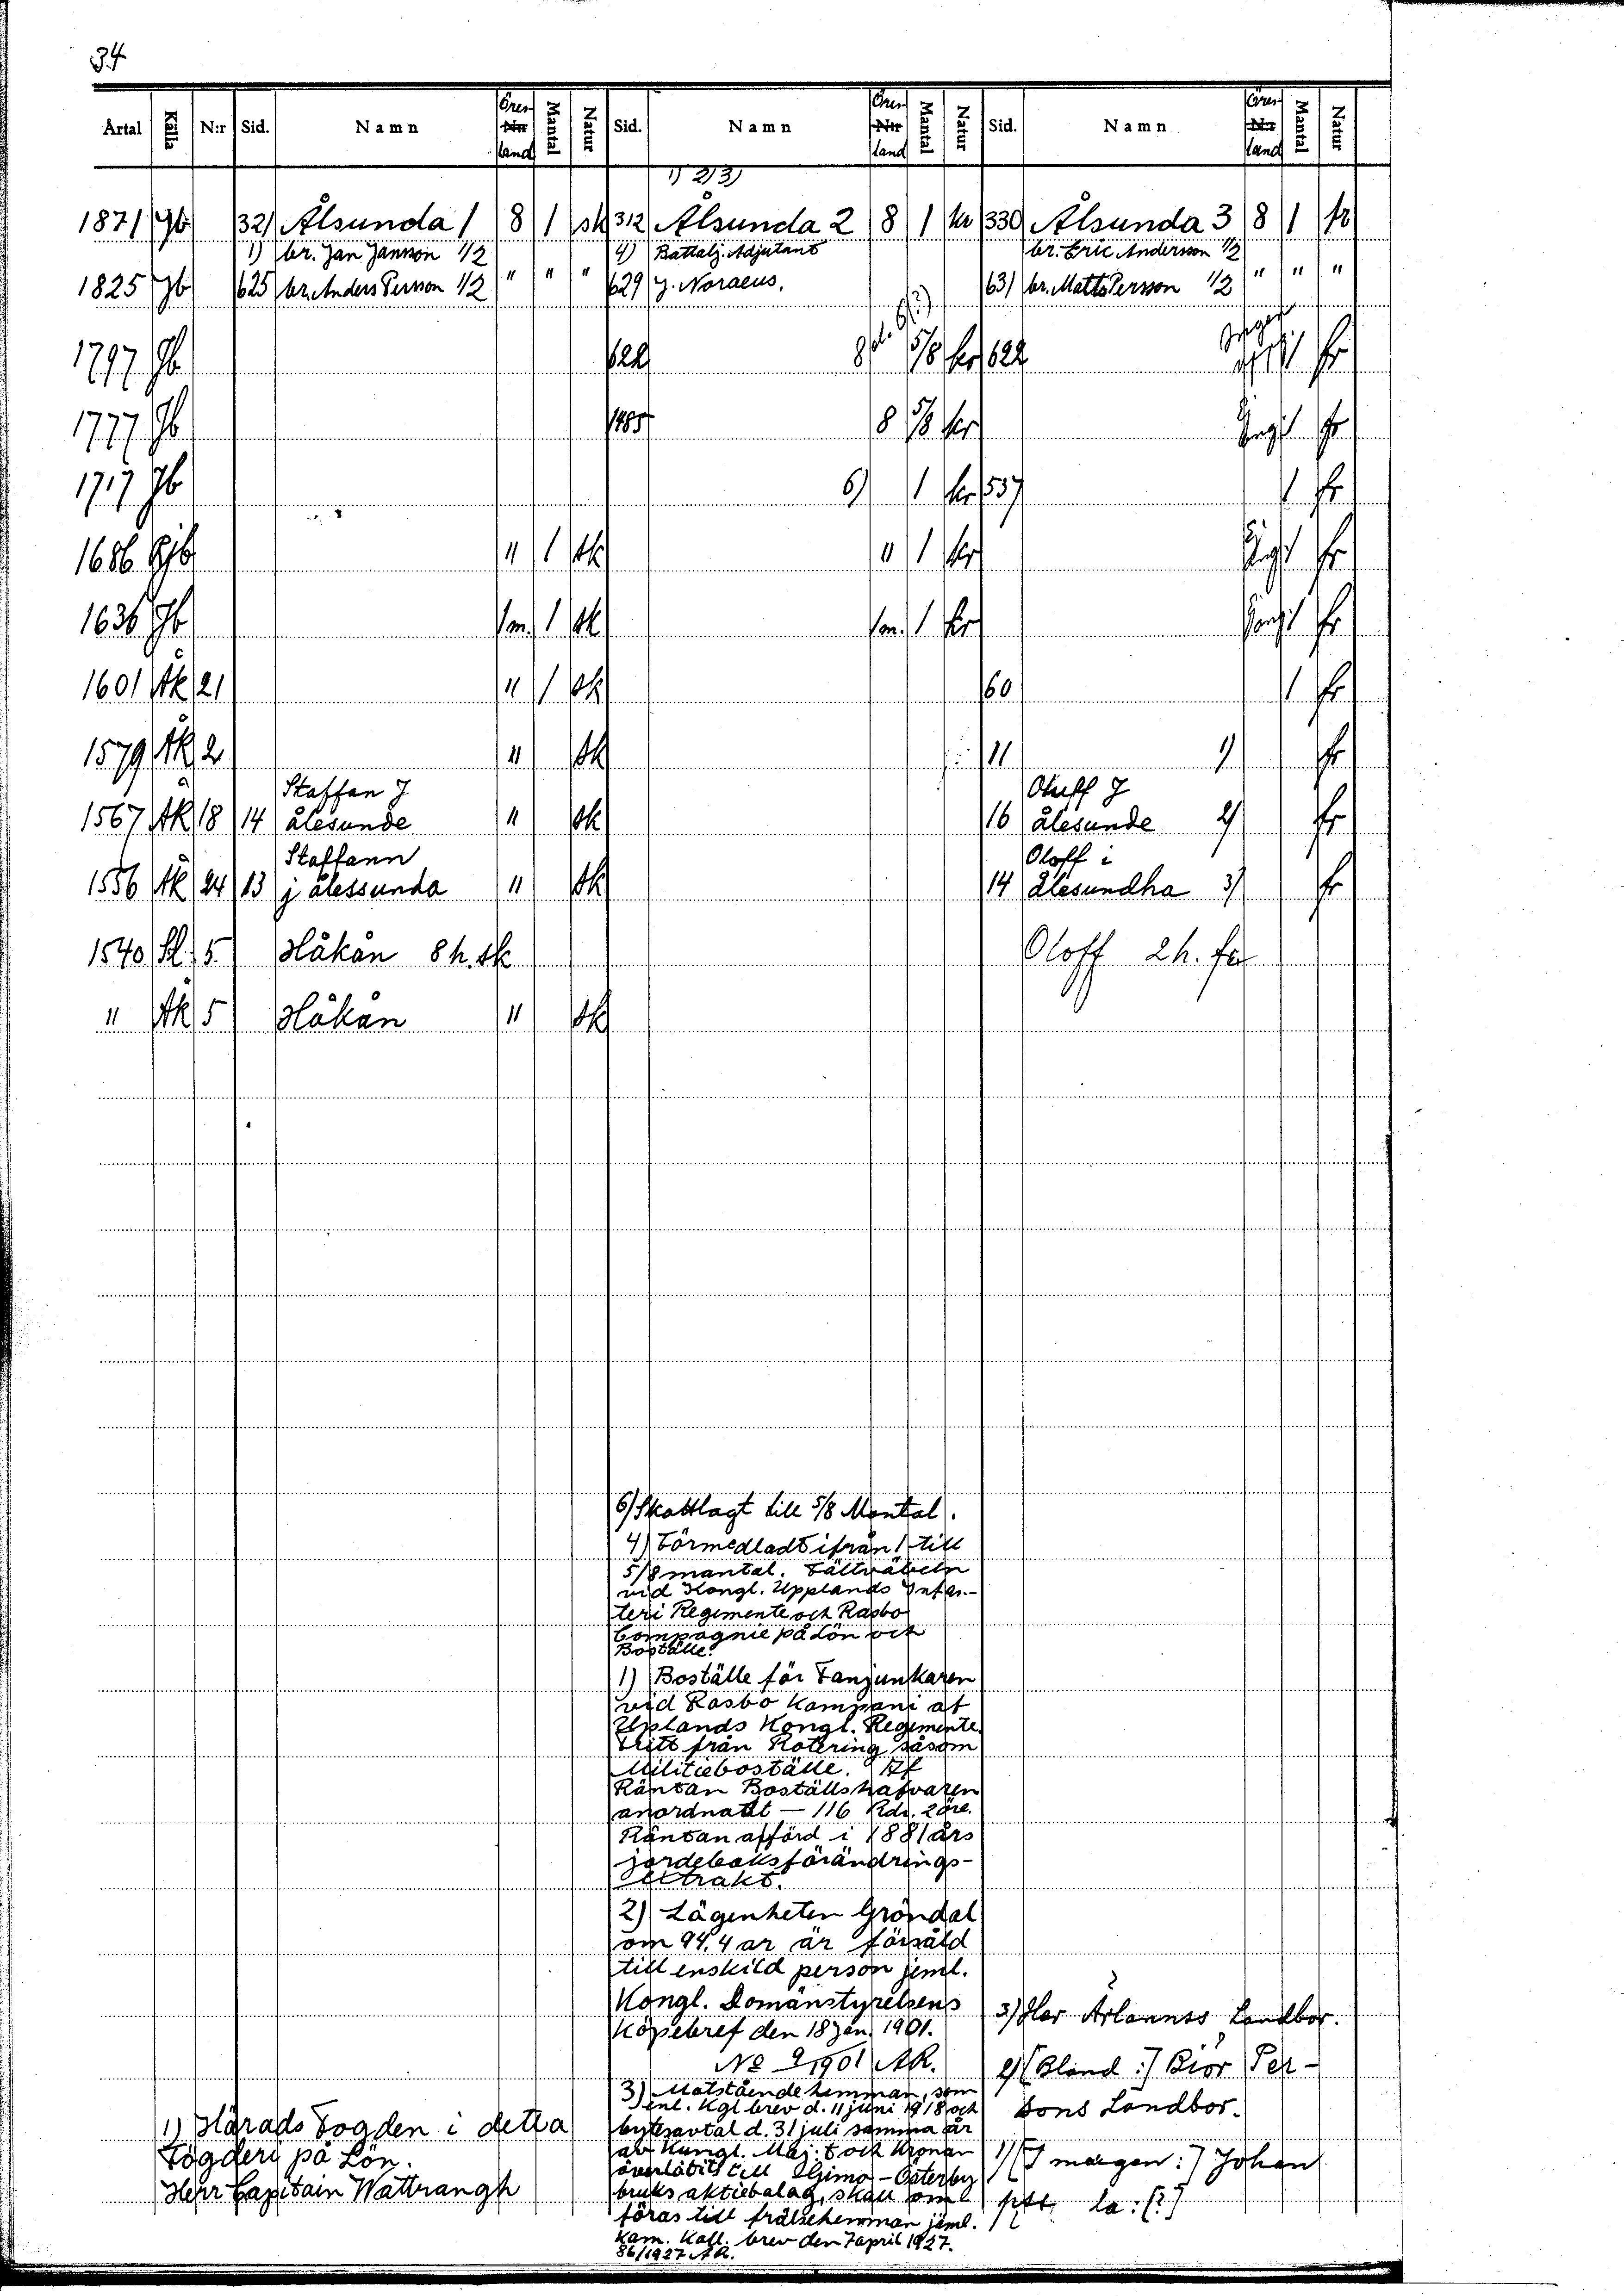 34
Årtal Källa N:r Sid. Namn Öres Nr land Mantal Natur Sid. Namn Öres Nr land Mantal Natur Sid. Namn Öres Nr land Mantal Natur
1) 2) 3)
1871 Jb 321 Ålsunda 1 8 1 sk 312 Ålsunda 2 8 1 kr 330 Ålsunda 3 8 1 fr
1) br. Jan Jansson 1/2 4) Battalj. Adjutant br. Eric Anderson 1/2
1825 Jb 625 br. Anders Persson 1/2 " " " 629 J. Noraeus. 631 br. Matts Persson 1/2 " " "
1797 Jb 622 5/8 kr 622 fr
1777 Jb 1485 8 5/8 kr fr
1717 Jb 6) 1 kr 537 1 fr
1686 Jb " 1 sk " 1 kr fr
1636 Jb 1 sk 1 kr fr
1601 Åk 21 " 1 sk 60 1 fr
1579 Åk 2 " sk 11 1) fr
Staffan J Oluff J
1567 Åk 18 14 ålesunde " sk 16 ålesunde 2) fr
Staffann Oloff i
1556 Åk 24 13 j ålessunda " sk 14 ålesundha 3) fr
1540 Sl. 5 Håkån 8 h. sk Oloff 2 h.
" Åk 5 Håkån " sk
6) Skattlagt till 5/8 Mantal.
4) Förmedladt ifrån 1 till
5/8 mantal. Fältväbeln
vid Kongl. Upplands Infan-
teri Regimente och Rasbo
Compagnie på Lön och
Boställe.
1) Boställe för Fanjunkaren
vid Rasbo Kompani af
Uplands Kongl. Regimente.
Fritt från Rotering såsom
Militieboställe. Af
Räntan Boställshafvaren
anordnadt — 116 Rdr. 2 öre.
Räntan afförd i 1881 års
jordeboksförändrings-
extrakt.
2) Lägenheten Gröndal
om 94,4 ar är försåld
till enskild person jeml.
Kongl. Domänstyrelsens
Köpebref den 18 jan. 1901.
No 2 1901 AR.
3) Motstående hemman, som
enl. Kgl brev d. 11 juni 1918 och
bytesavtal d. 31 juli samma år
av Kungl. Maj:t och Kronan
överlåtits till Gimo-Österby
bruks aktiebolag, skall om-
föras till frälsehemman jäml.
Kam. Koll. brev den 7 april 1927.
86/1927 AR.
1) Härads Fogden i detta
Fögderi på Lön.
Herr Capitain Wattrangh
3) Her Arlannss Landbor.
2) (Bland :) Biör Per-
sons Landbor.
1) (I margen :) Johan
la: (?)